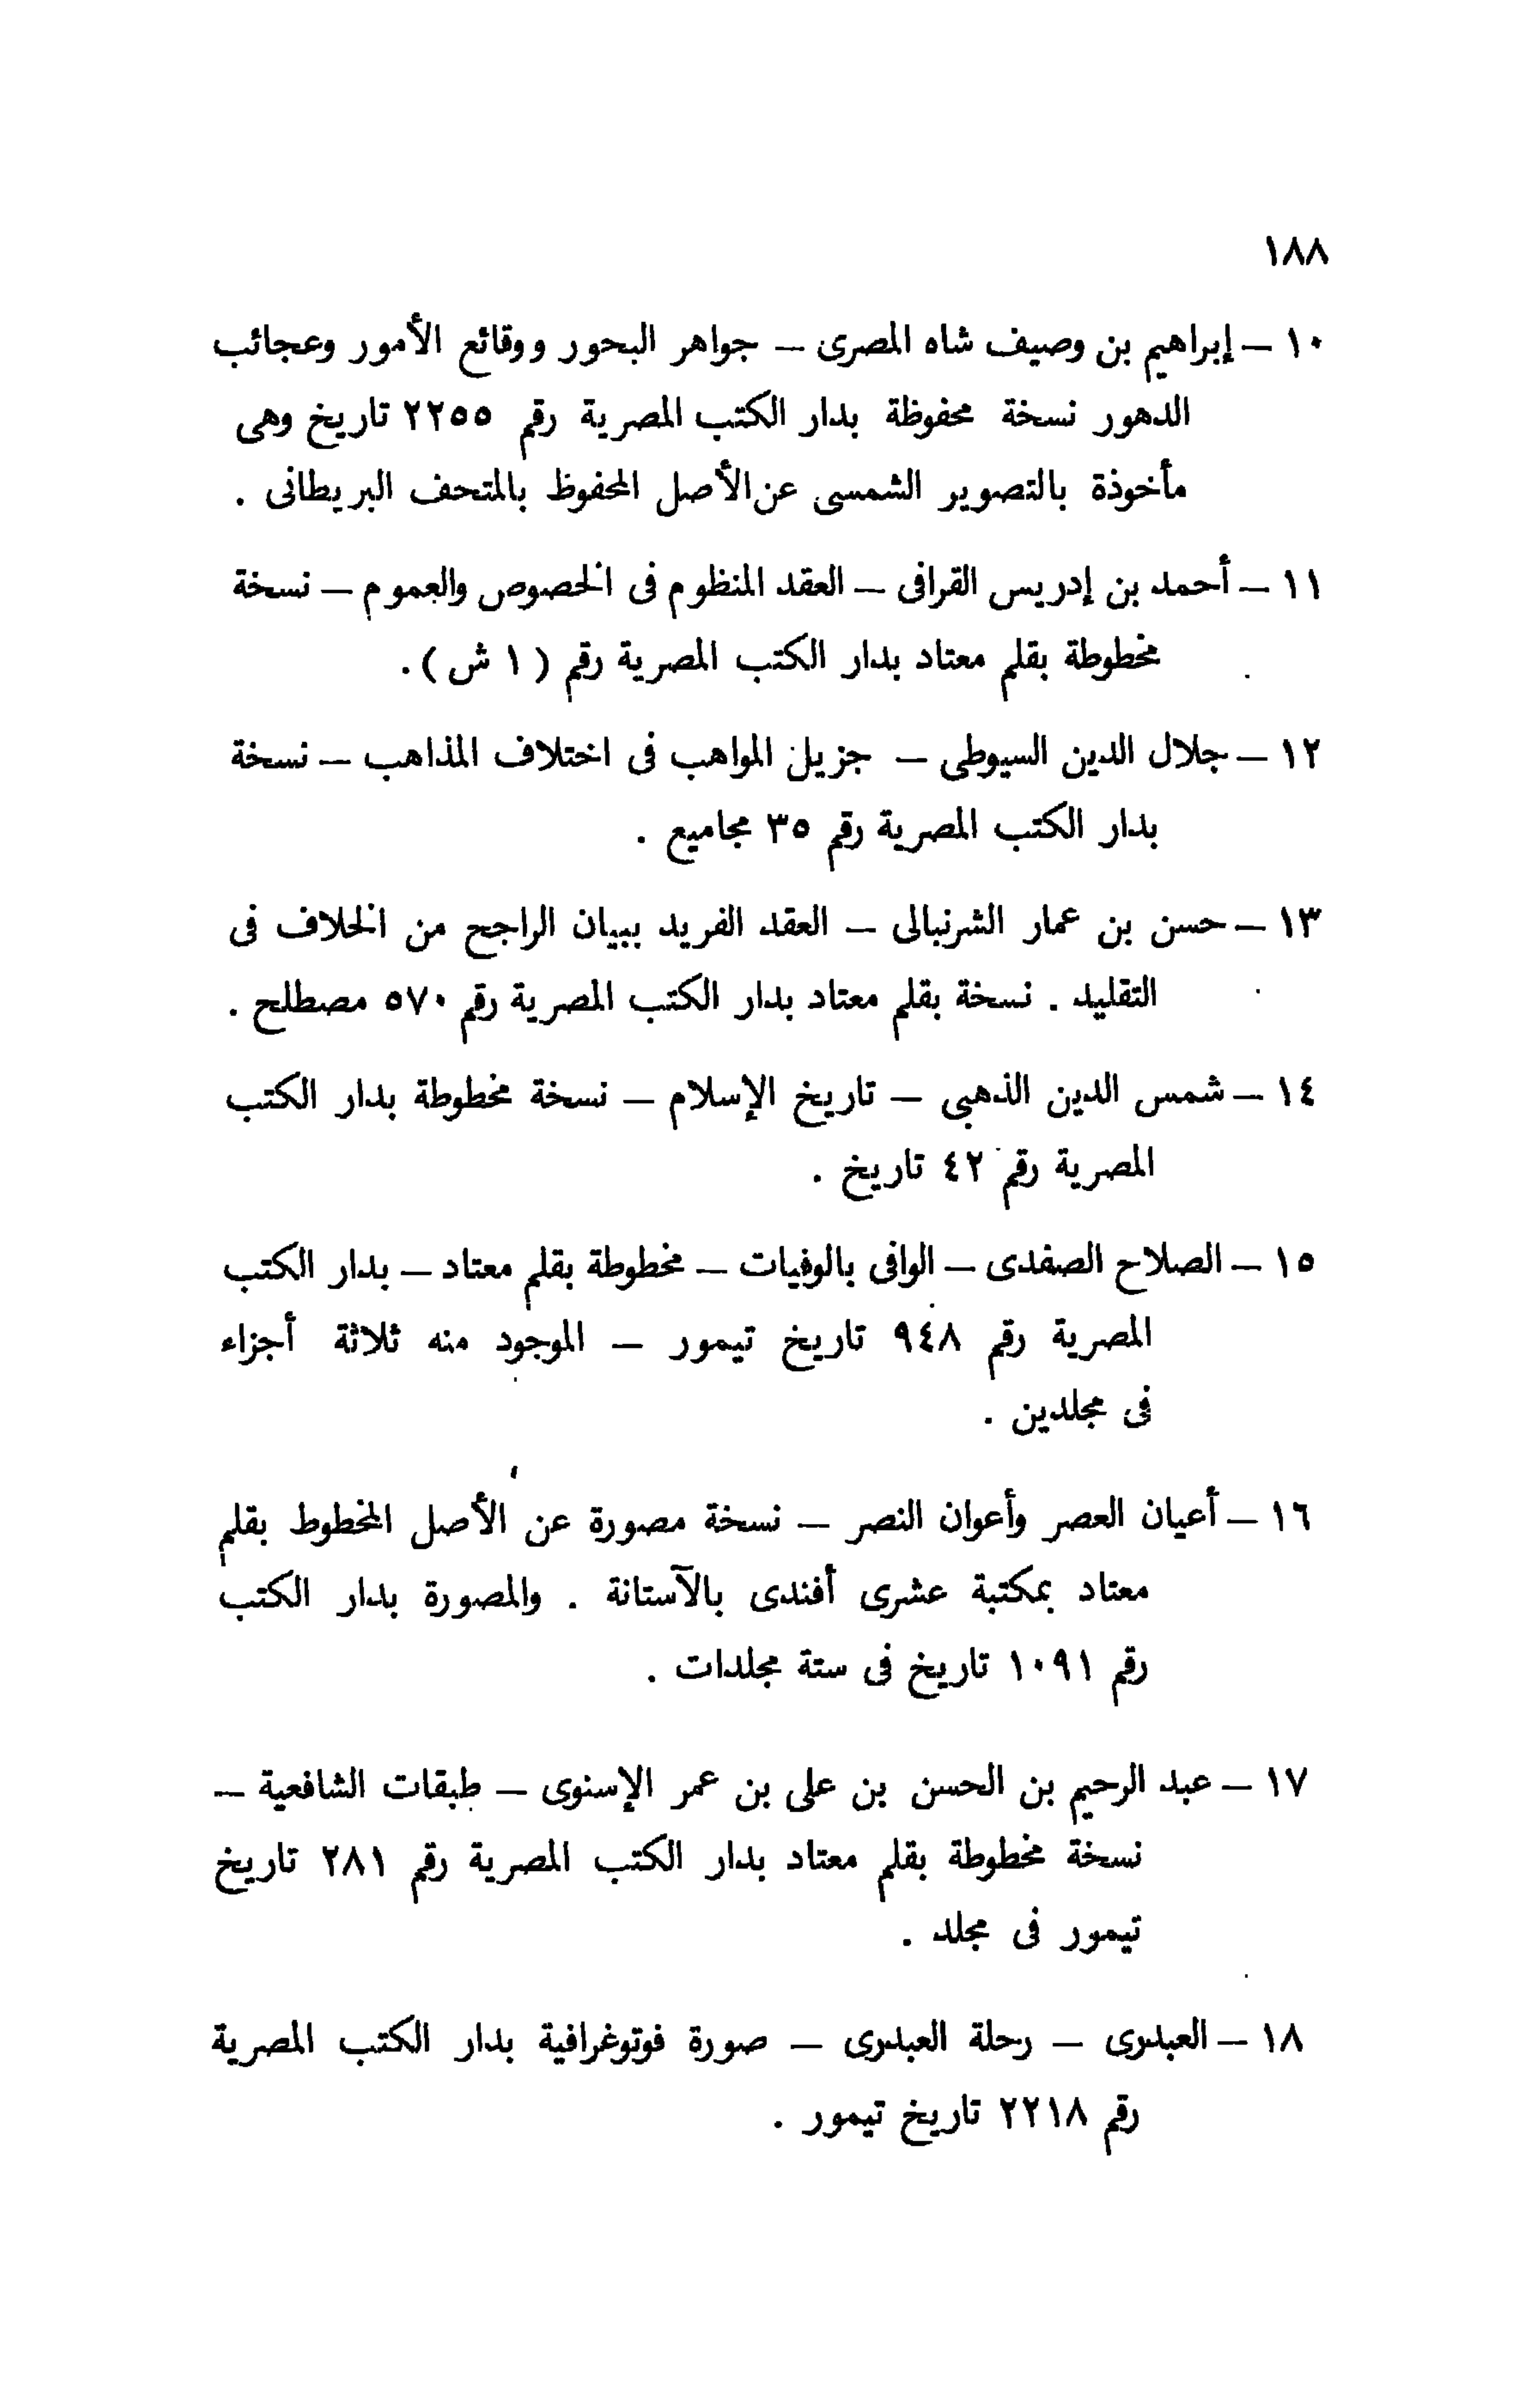 ١٨٨
١٠ – إبراهيم بن وصيف شاه المصرى – جواهر البحور ووقائع الأمور وعجائب
الدهور نسخة محفوظة بدار الكتب المصرية رقم ٢٢٥٥ تاريخ وهى
مأخوذة بالتصوير الشمسى عن الأصل المحفوظ بالمتحف البريطانى .
١١ – أحمد بن إدريس القرافى – العقد المنظوم فى الخصوص والعموم – نسخة
مخطوطة بقلم معتاد بدار الكتب المصرية رقم ( ١ ش ) .
١٢ – جلال الدين السيوطى – جزيل المواهب فى اختلاف المذاهب – نسخة
بدار الكتب المصرية رقم ٣٥ مجاميع .
١٣ – حسن بن عمار الشرنبالى – العقد الفريد ببيان الراجح من الخلاف فى
التقليد . نسخة بقلم معتاد بدار الكتب المصرية رقم ٥٧٠ مصطلح .
١٤ – شمس الدين الذهبى – تاريخ الإسلام – نسخة مخطوطة بدار الكتب
المصرية رقم ٤٢ تاريخ .
١٥ – الصلاح الصفدى – الوافى بالوفيات – مخطوطة بقلم معتاد – بدار الكتب
المصرية رقم ٩٤٨ تاريخ تيمور – الموجود منه ثلاثة أجزاء
فى مجلدين .
١٦ – أعيان العصر وأعوان النصر – نسخة مصورة عن الأصل المخطوط بقلم
معتاد بمكتبة عشرى أفندى بالآستانة . والمصورة بدار الكتب
رقم ١٠٩١ تاريخ فى ستة مجلدات .
١٧ – عبد الرحيم بن الحسن بن على بن عمر الإسنوى – طبقات الشافعية –
نسخة مخطوطة بقلم معتاد بدار الكتب المصرية رقم ٢٨١ تاريخ
تيمور فى مجلد .
١٨ – العبدرى – رحلة العبدرى – صورة فوتوغرافية بدار الكتب المصرية
رقم ٢٢١٨ تاريخ تيمور .